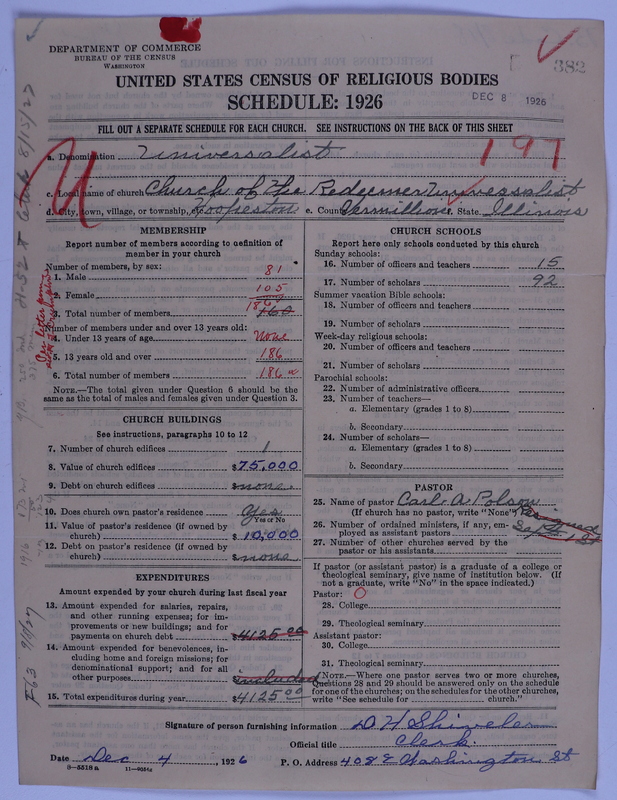 DEPARTMENT OF COMMERCE
BUREAU OF THE CENSUS
WASHINGTON
382
UNITED STATES CENSUS OF RELIGIOUS BODIES
SCHEDULE: 1926
DEC 8 1926
FILL OUT A SEPARATE SCHEDULE FOR EACH CHURCH. SEE INSTRUCTIONS ON THE BACK OF THIS SHEET
a. Denomination Universalist
197
c. Local name of church Church of The Redeemer Universalist
d. City, town, village, or township, etc. Hoopeston e. County Vermillion f. State Illinois
MEMBERSHIP
Report number of members according to definition of
member in your church
Number of members, by sex:
1. Male 81
2. Female 105
3. Total number of members 186 160
Number of members under and over 13 years old:
4. Under 13 years of age none
5. 13 years old and over 186
6. Total number of members 186
NOTE.—The total given under Question 6 should be the
same as the total of males and females given under Question 3.
CHURCH BUILDINGS
See instructions, paragraphs 10 to 12
7. Number of church edifices 1
8. Value of church edifices $75,000
9. Debt on church edifices $none
10. Does church own pastor's residence? yes
Yes or No
11. Value of pastor's residence (if owned by
church) $10,000
12. Debt on pastor's residence (if owned by
church) $none
EXPENDITURES
Amount expended by your church during last fiscal year
13. Amount expended for salaries, repairs,
and other running expenses; for im-
provements or new buildings; and for
payments on church debt $4125 00
14. Amount expended for benevolences, in-
cluding home and foreign missions; for
denominational support; and for all
other purposes $included
15. Total expenditures during year $4125 00
CHURCH SCHOOLS
Report here only schools conducted by this church
Sunday schools:
16. Number of officers and teachers 15
17. Number of scholars 92
Summer vacation Bible schools:
18. Number of officers and teachers
19. Number of scholars
Week-day religious schools:
20. Number of officers and teachers
21. Number of scholars
Parochial schools:
22. Number of administrative officers
23. Number of teachers—
a. Elementary (grades 1 to 8)
b. Secondary
24. Number of scholars—
a. Elementary (grades 1 to 8)
b. Secondary
PASTOR
25. Name of pastor Carl A. Polson
(If church has no pastor, write "None") Resigned
26. Number of ordained ministers, if any, em-
ployed as assistant pastors Sept 1st
27. Number of other churches served by the
pastor or his assistants
If pastor (or assistant pastor) is a graduate of a college or
theological seminary, give name of institution below. (If
not a graduate, write "No" in the space indicated.)
Pastor: O
28. College
29. Theological seminary
Assistant pastor:
30. College
31. Theological seminary
[NOTE.—Where one pastor serves two or more churches,
Questions 28 and 29 should be answered only on the schedule
for one of the churches; on the schedules for the other churches,
write "See schedule for church."]
Signature of person furnishing information D. H. Shiveler
Official title Clerk
Date Dec 4, 1926 P. O. Address 408 E Washington St
8—5518a 11—9054a